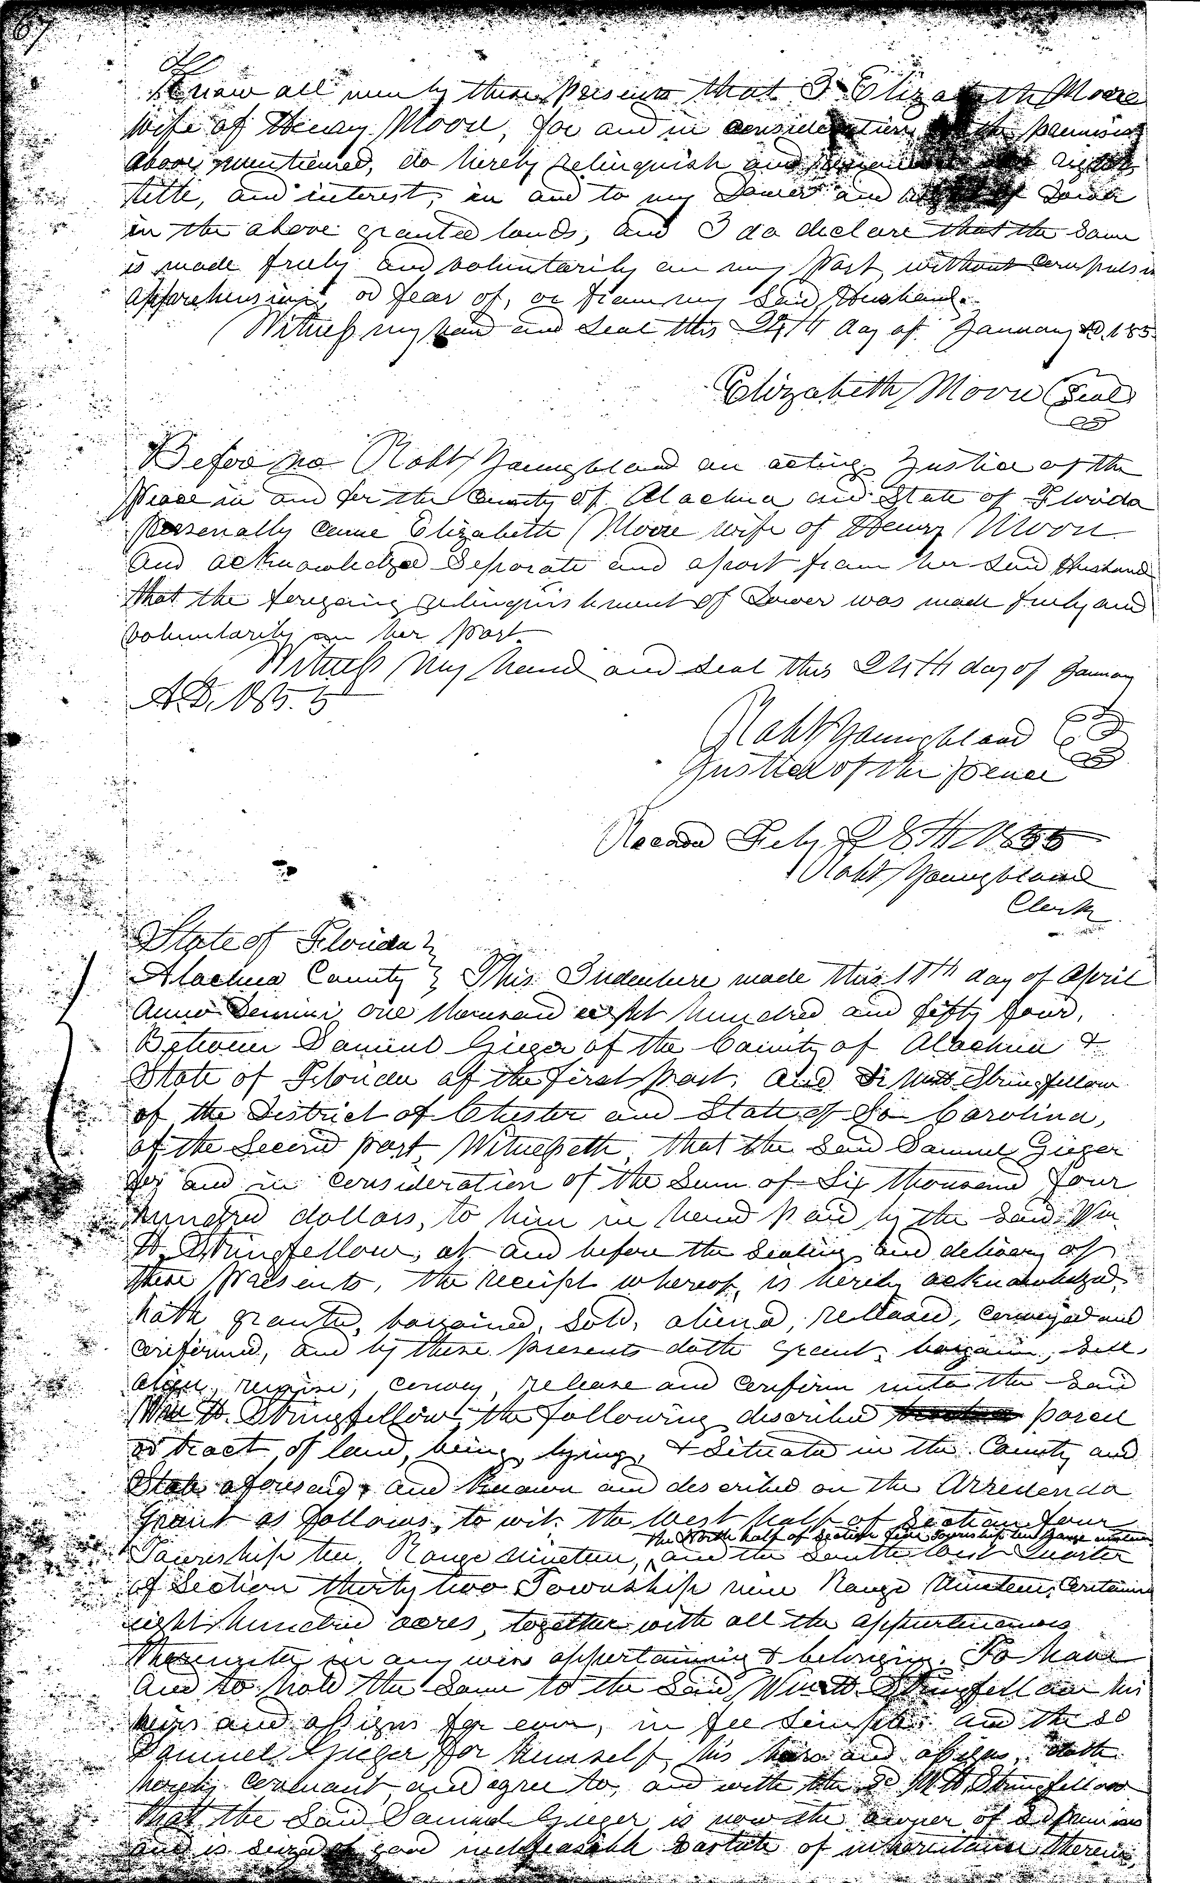 67
Know all men by these presents that I Elizabeth Moore
wife of Henry Moore, for and in consideration the premises
above mentioned, do hereby relinquish and right
title, and interest, in and to my Dower and right of Dower
in the above granted lands, and I do declare that the same
is made freely and voluntarily on my part, without compulsion
apprehension, or fear of, or from my said Husband.
Witness my hand and seal this 24th day of January AD. 185
Elizabeth Moore (Seal)
Before me Robt Youngblood an acting Justice of the
Peace in and for the County of Alachua and State of Florida
personally came Elizabeth Moore wife of Henry Moore
and acknowledged separate and apart from her said Husband
that the foregoing relinquishment of Dower was made freely and
voluntarily on her part.
Witness my hand and seal this 24th day of January
A.D. 1855
Robt Youngblood
Justice of the peace
Record Feby 28th 1855
Robt Youngblood
Clerk
State of Florida }
Alachua County } This Indenture made this 11th day of April
Anno Domini one thousand eight hundred and fifty four,
Between Samuel Gieger of the County of Alachua &
State of Florida of the first part, and Stringfellow
of the District of Chester and State of So Carolina,
of the second part, Witnesseth, that the said Samuel Gieger
for and in consideration of the sum of Six thousand four
hundred dollars, to him in hand paid by the said Wm
H. Stringfellow, at and before the sealing and delivery of
these presents, the receipt whereof, is hereby acknowledged,
hath granted, bargained, sold, aliened, released, conveyed and
confirmed, and by these presents doth grant, bargain, sell,
alien, remise, convey, release and confirm unto the said
Wm H. Stringfellow, the following described parcel
or tract, of land, being, lying, & situate in the County and
State aforesaid, and known and described on the Arredonda
Grant as follows, to wit, the west half of Section four
the North half of Section five Township ten Range nineteen
Township ten, Range nineteen, and the South west quarter
of Section thirty two Township nine Range Nineteen, Containing
eight hundred acres, together with all the appurtenances
thereunto in any wise appertaining & belonging. To have
and to hold the same to the said Wm H. Stringfellow his
heirs and assigns for ever, in fee simple. and the sd
Samuel Gieger for himself, his heirs and assigns, doth
hereby covenant, and agree to, and with the sd W H Stringfellow
that the said Samuel Gieger is now the owner of sd premises
and is seized of good indefeasible Eastate of inheritance therein,